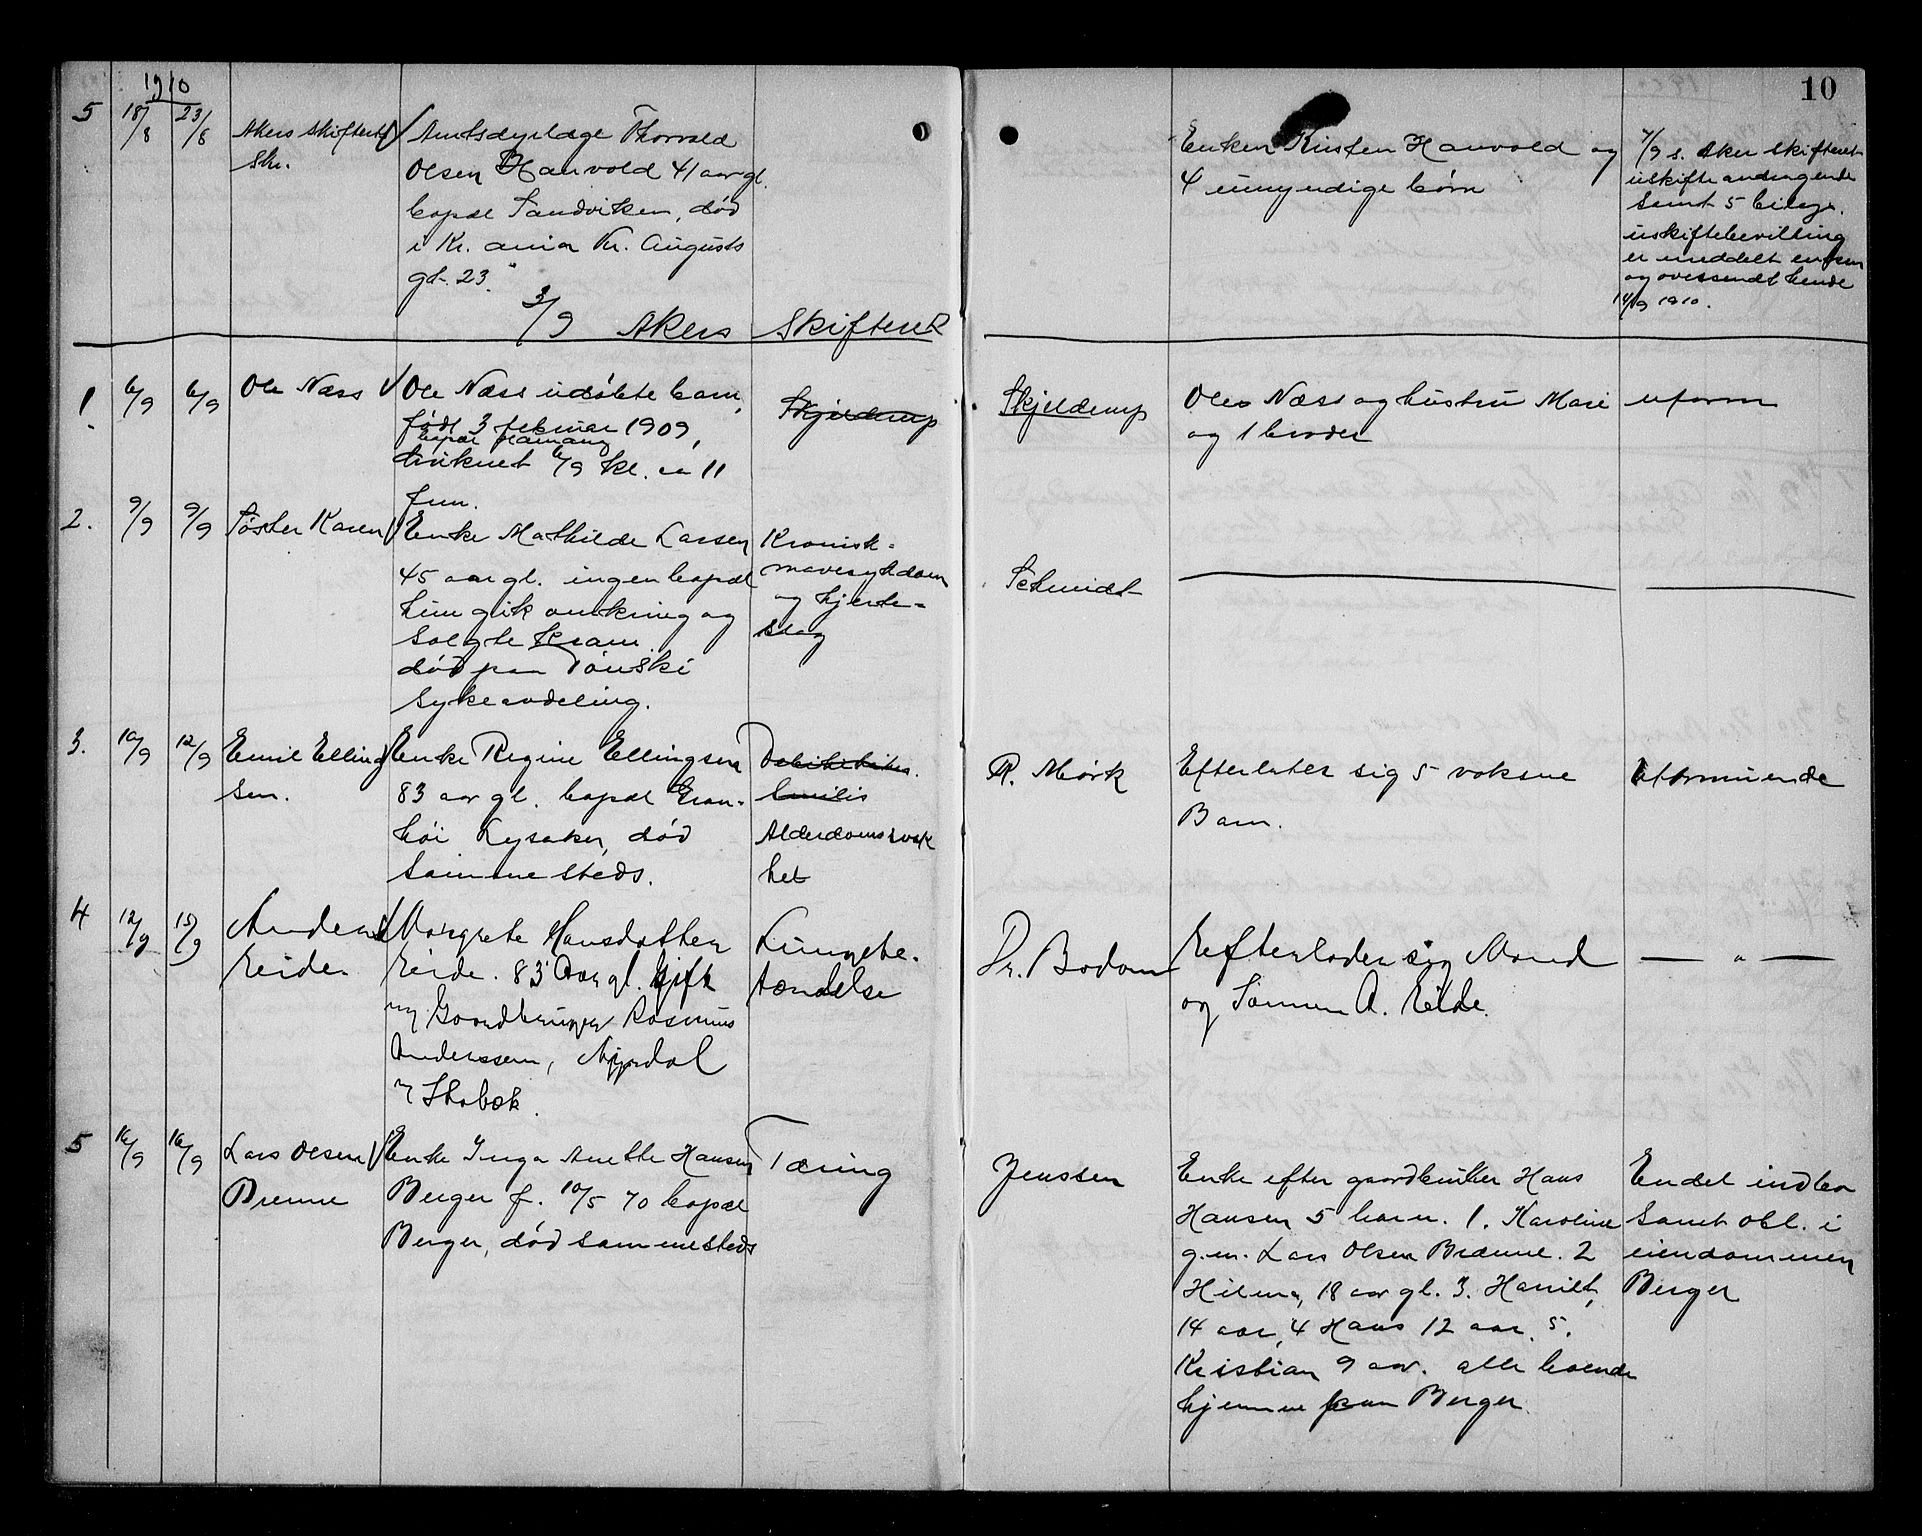 10
1910
5 18/8 23/8 Akers Skifterets
Skr.
Amtsdyrlæge Thorvald
Olsen Hanvold 41 aar gl.
bopæl Sandviken, død
i Kr.ania Kr. Augusts
gt. 23.
Enken Kirsten Hanvold og
4 umyndige børn
7/9 s. Aker skifteret
uskifteandragende
samt 5 bilag.
uskiftebevilling
er meddelt enken
og oversendt hende
14/9 1910.
3/9 Akers Skifteret
1. 6/9 6/9 Ole Næss
Ole Næss udøbte barn,
født 3 februar 1909,
bopæl
druknet 6/9 kl. ca 11
fm.
Skjelderup
Skjelderup
Oles Næss og hustru Mari
og 1 broder
uform
2. 9/9 9/9 Søster Karen
Enke Mathilde Larsen
45 aar gl. ingen bopæl
hun gik omkring og
solgte kram
død paa Tanski
sykeavdeling.
Kronisk-
mavesykdom
og hjerte-
slag
Schmidt
3. 10/9 12/9 Emil Elling
sen.
Enke Regine Ellingsen
83 aar gl. bopæl Gran-
høi Lysaker, død
sammesteds.
Senilis
Alderdomssvak
het
R. Mørk
Efterlater sig 5 voksne
Barn.
Uformuende
4 12/9 15/9 Anders
Eide
Margrete Hansdatter
Eide. 83 Aar gl. Gift
m/ Gaardbruger Rasmus
Anderssen,
Lungebe-
tændelse
Dr. Bodom
Efterlader sig Mand
og Sønnen A. Eide.
— " —
5 16/9 16/9 Lars Olsen
Brenne
Enke Inga Anette Hansen
Berger f. 10/5 70 bopæl
Berger, død sammesteds
Tæring
Jenssen
Enke efter gaardbruker Hans
Hansen 5 barn. 1. Karoline
g.m. Lars Olsen Brænne. 2
Hilma, 18 aar gl. 3. Harriet,
14 aar, 4 Hans 12 aar, 5.
Kristian 9 aar. alle boende
hjemme paa Berger.
En del indbo
samt obl. i
eiendommen
Berger